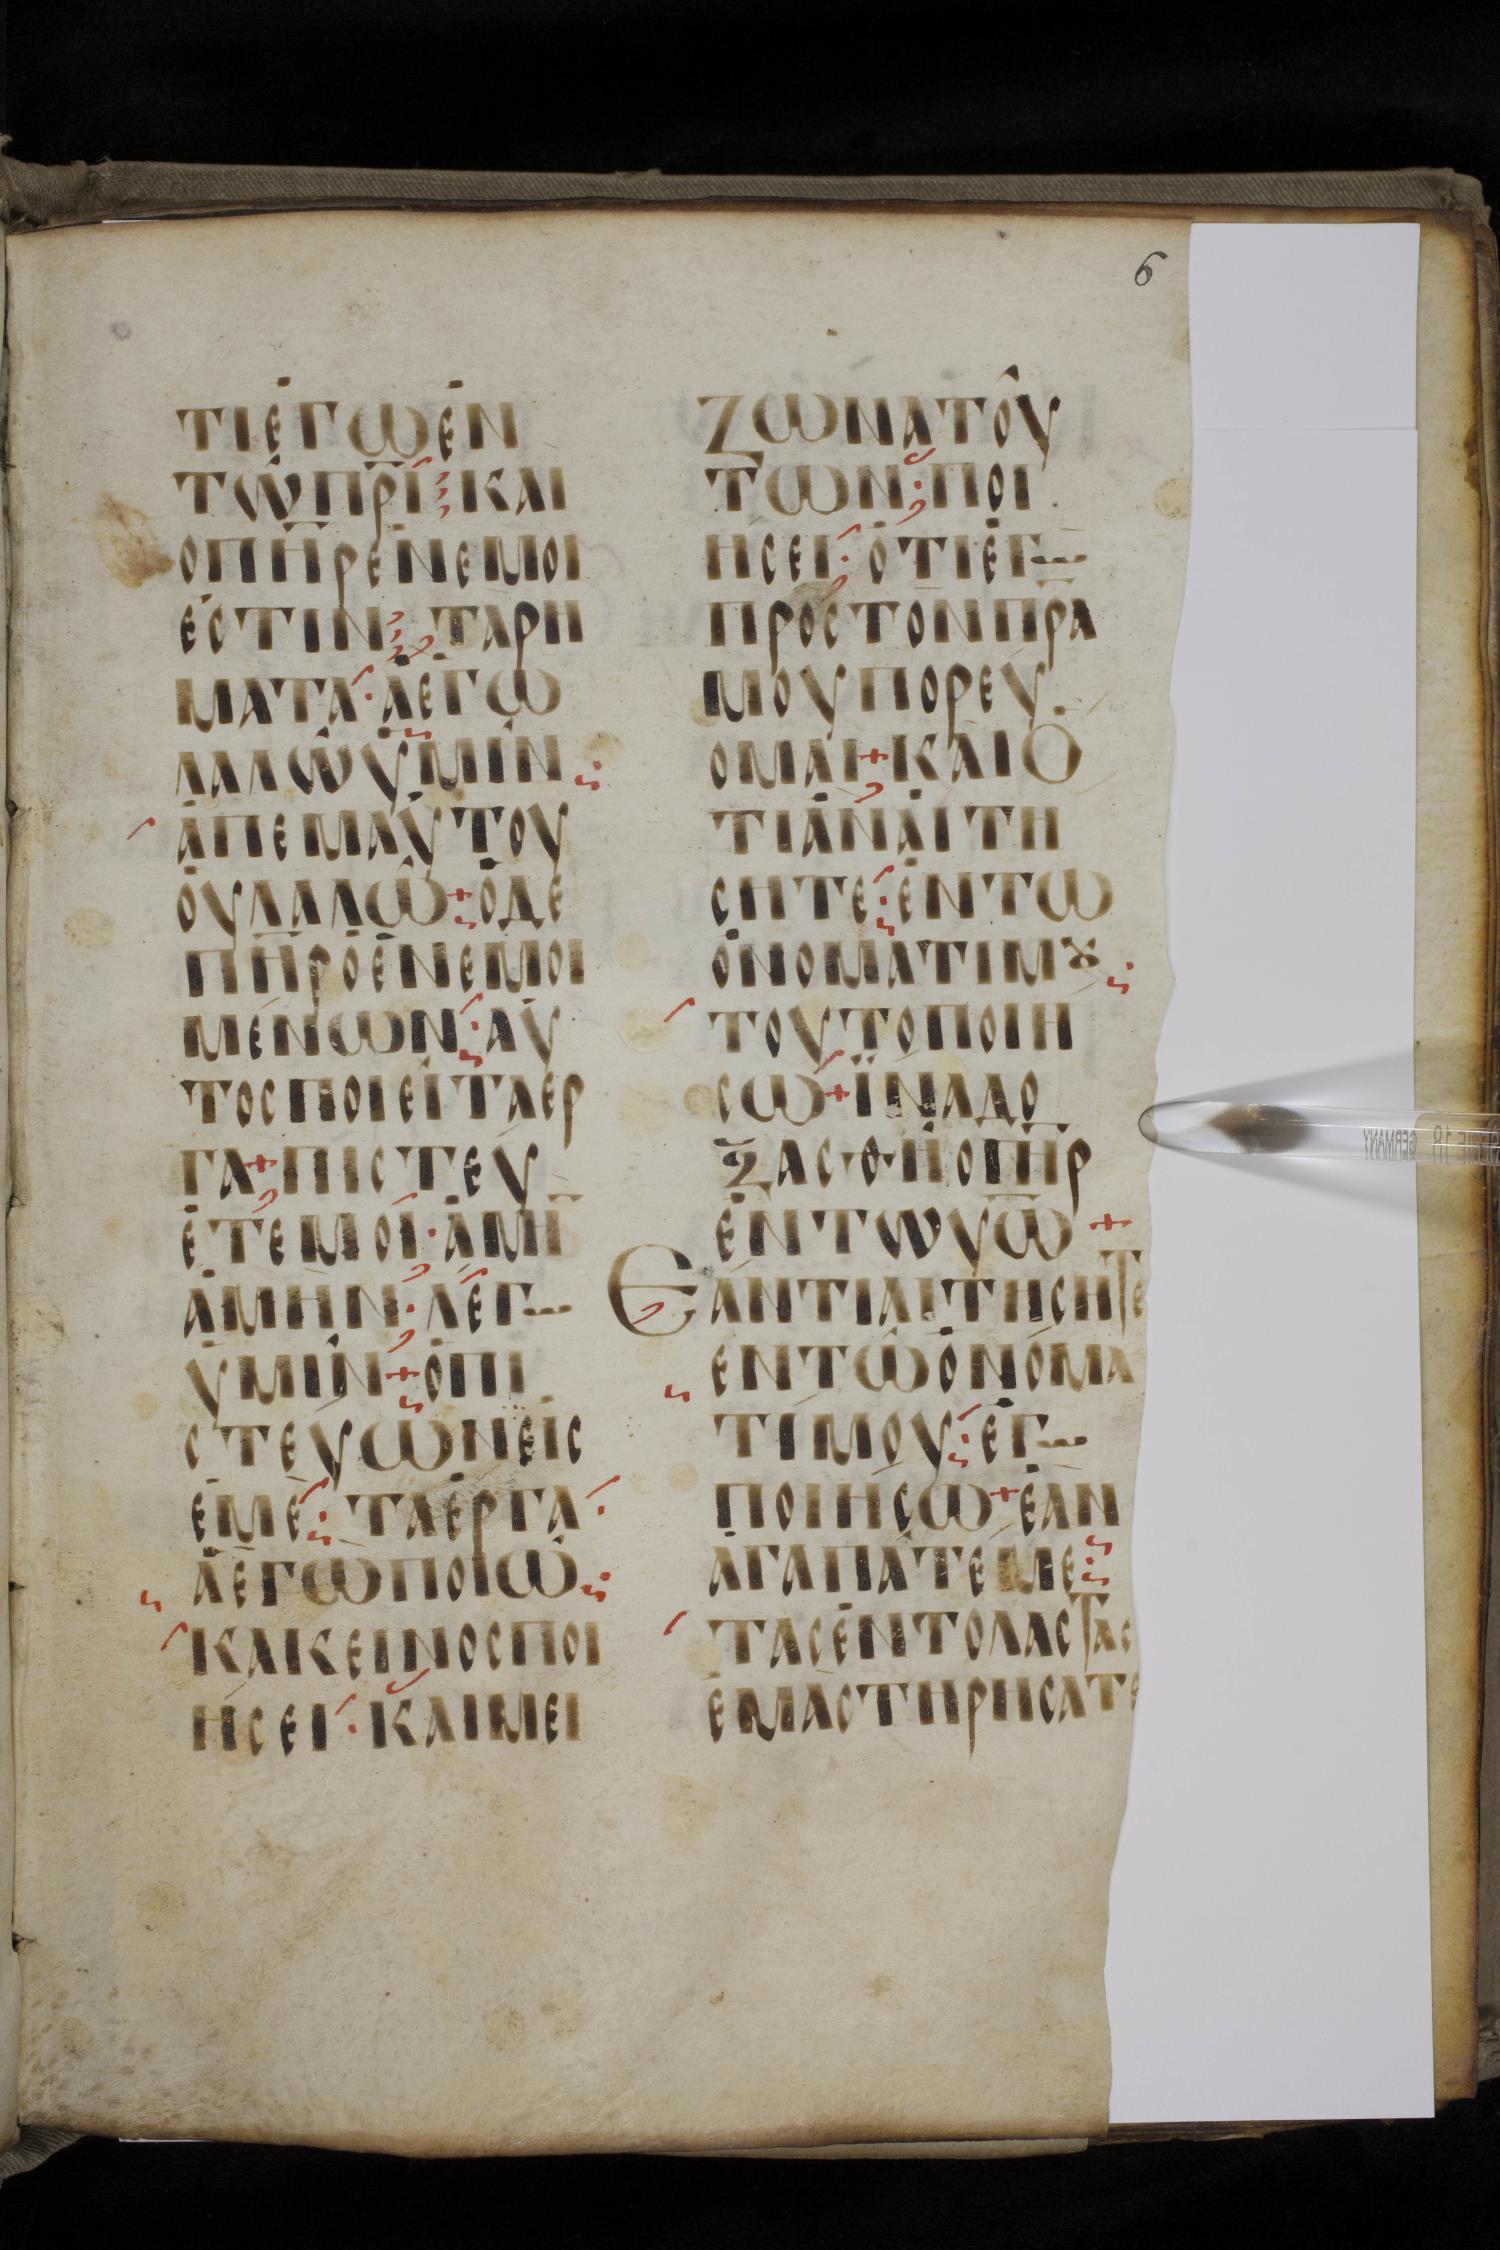 6
ΤΙΕΓΩΕΝ
ΤΩΠΡΙ ΚΑΙ
ΟΠΗΡΕΝΕΜΟΙ
ΕϹΤΙΝ ΤΑΡΗ
ΜΑΤΑ· ΑΕΓΩ
ΛΑΛΩΥΜΙΝ
ΑΠΕΜΑΥΤΟΥ
ΟΥΛΑΛΩ+ΟΔΕ
ΠΗΡΟΕΝΕΜΟΙ
ΜΕΝΩΝ: ΑΥ
ΤΟϹΠΟΙΕΙΤΑΕΡ
ΓΑ+ΠΙϹΤΕΥ
ΕΤΕΜΟΙ· ΑΜΗ̅
ΑΜΗΝ· ΛΕΓω
ΥΜΙΝ+ΟΠΙ
ϹΤΕΥΩΝΕΙϹ
ΕΜΕ: ΤΑΕΡΓΑ·
ΑΕΓΩΠΟΙΩ
ΚΑΚΕΙΝΟϹΠΟΙ
ΗϹΕΙ· ΚΑΙΜΕΙ
ΖΩΝΑΤΟΥ
ΤΩΝ· ΠΟΙ
ΗϹΕΙ· ΟΤΙΕΓω
ΠΡΟϹΤΟΝΠΡΑ
ΜΟΥΠΟΡΕΥ
ΟΜΑΙ+ΚΑΙΟ
ΤΙΑΝΑΙΤΗ
ϹΗΤΕ: ΕΝΤΩ
ΟΝΟΜΑΤΙΜȢ
ΤΟΥΤΟΠΟΙΗ
ϹΩ+ΪΝΑΔΟ
ΞΑϹΘΗΟΠΗΡ
ΕΝΤΩΥΩ+
ΕΑΝΤΙΑΙΤΗϹΗΤΕ
ΕΝΤΩΟΝΟΜΑ
ΤΙΜΟΥ: ΕΓω
ΠΟΙΗϹΩ+ΕΑΝ
ΑΓΑΠΑΤΕΜΕ
ΤΑϹΕΝΤΟΛΑϹΤΑϹ
ΕΜΑϹΤΗΡΗϹΑΤΕ